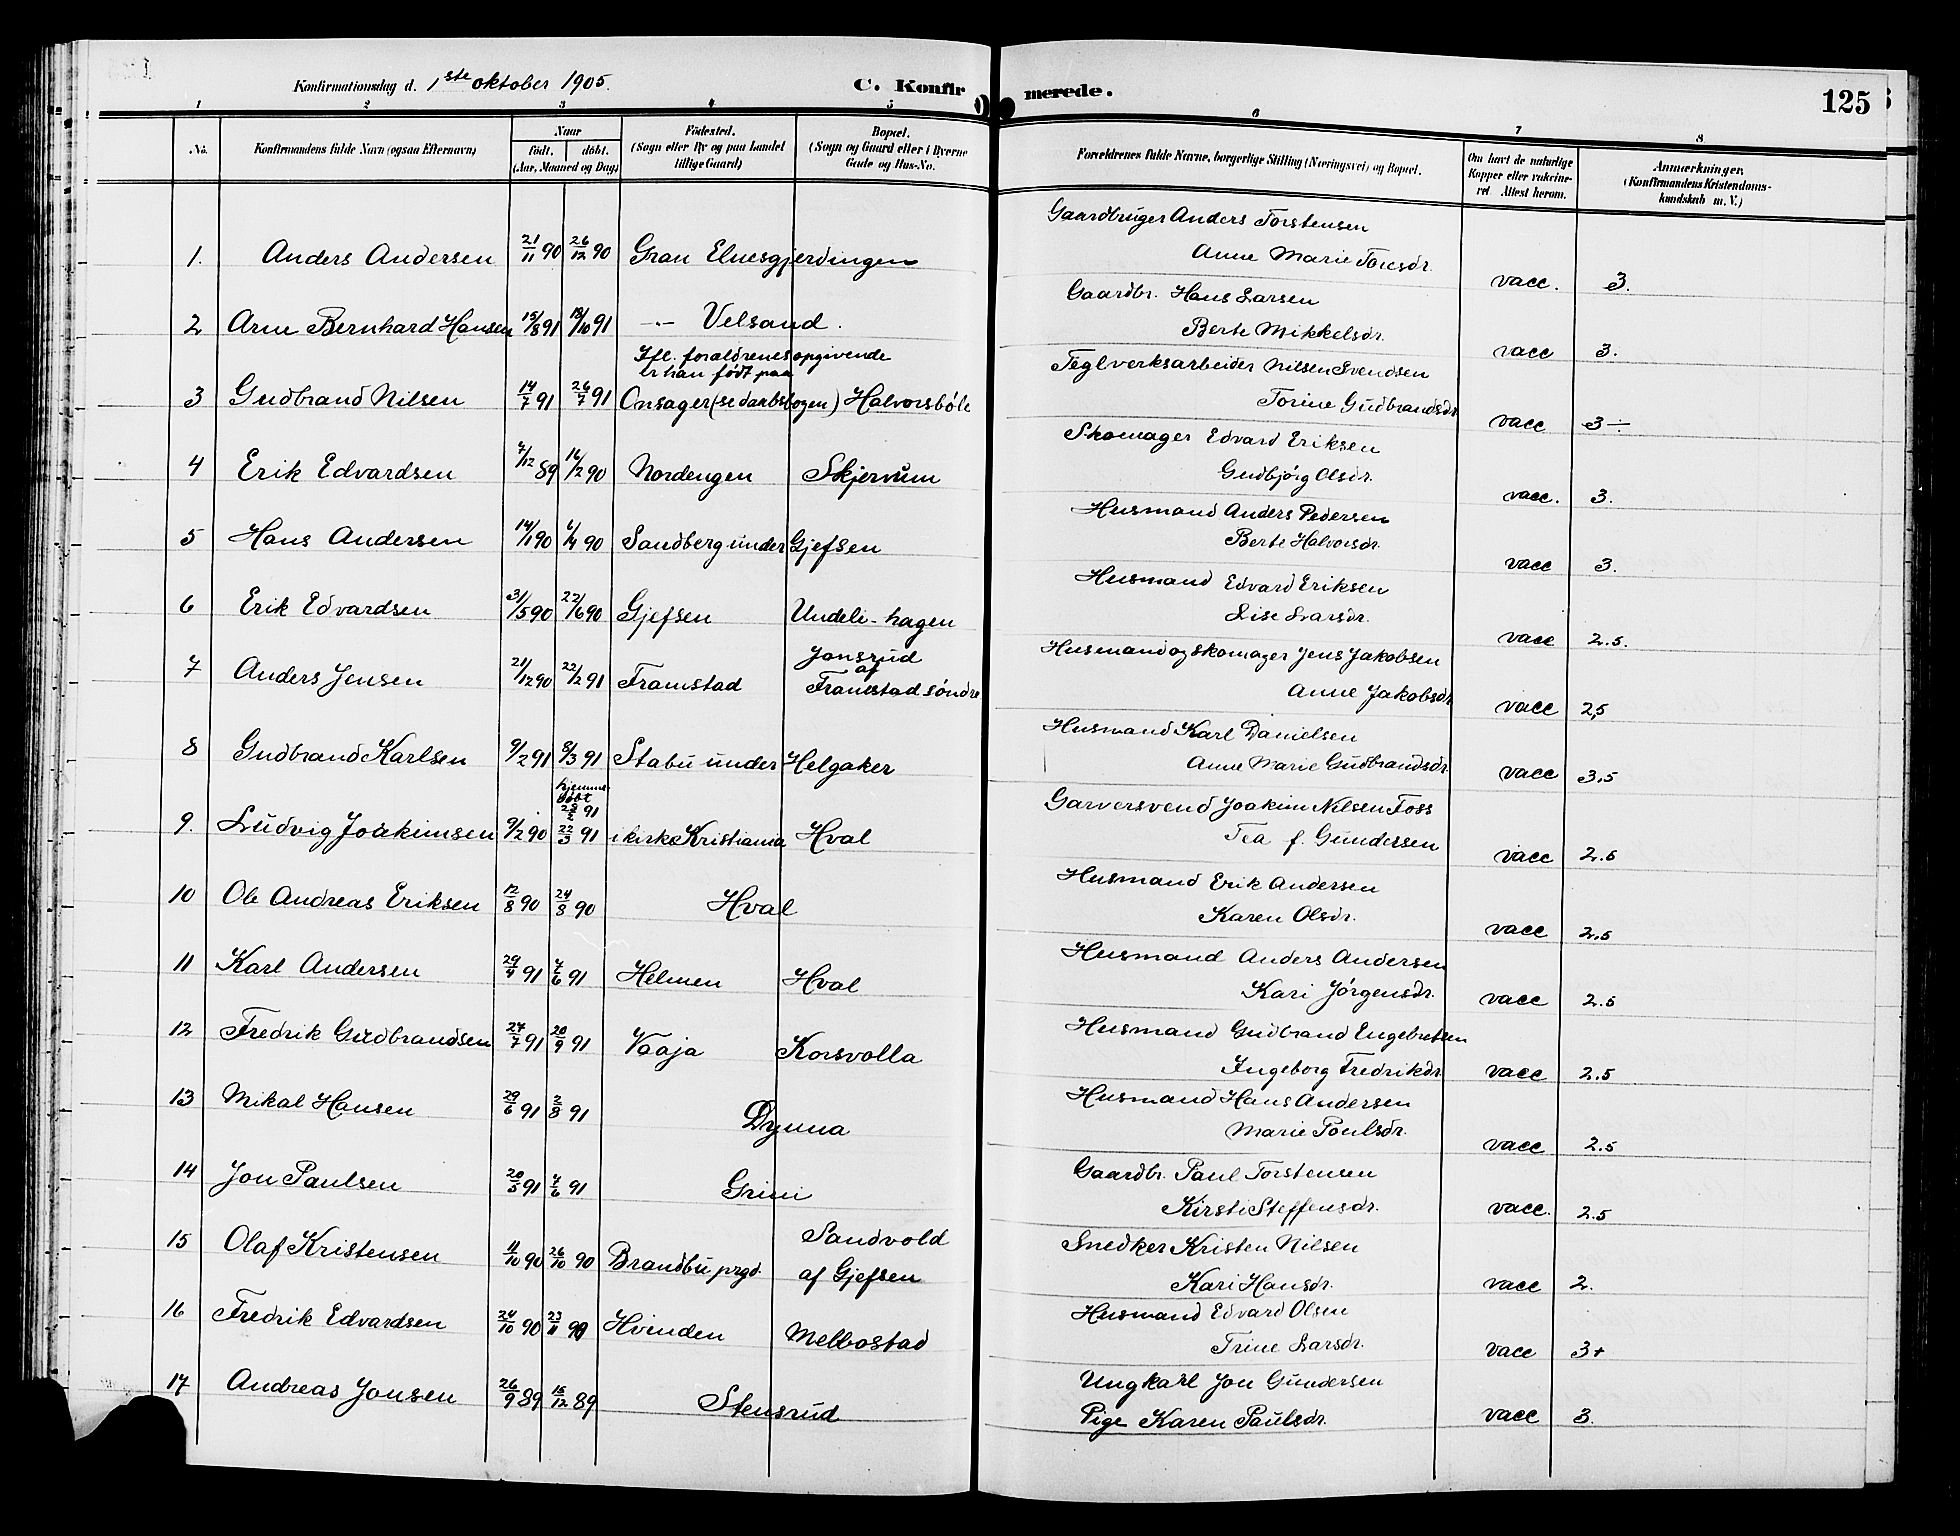 Konfirmationsdag d. 1ste oktober 1905. C. Konfirmerede. 125
1 2 3 4 5 6 7 8
No. Konfirmandens fulde Navn (ogsaa Efternavn) Naar født. døbt. (Aar, Maaned og Dag) Fødested. (Sogn eller By og paa Landet tillige Gaard) Bopæl. (Sogn og Gaard eller i Byerne Gade og Hus-No. Forældrenes fulde Navne, borgerlige Stilling (Næringsvei) og Bopæl. Om havt de naturlige Kopper eller vakcineret. Attest herom. Anmærkninger. (Konfirmandens Kristendomskundskab m. V.)
Gaardbruger Anders Torstensen
1. Anders Andersen 21/11 90 26/12 90 Gran Elnesgjerdingen Anne Marie Toresdr. vacc. 3.
Gaardbr. Hans Larsen
2 Arne Bernhard Hansen 15/8 91 18/10 91 -"- Velsand. Berte Mikkelsdr. vacc 3.
Ifl. foraldrenes opgivende
er han født paa
Teglverksarbeider Nilsen Svendsen
3 Gudbrand Nilsen 14/7 91 26/7 91 Onsager (se daabsbogen) Halvorsbøle Torine Gudbrandsdr vacc 3 ÷
Skomager Edvard Eriksen
4 Erik Edvardsen 7/12 89 16/2 90 Nordengen Skjervum Gudbjørg Olsdr. vacc. 3.
Husmand Anders Pedersen
5 Hans Andersen 14/1 90 4/4 90 Sandberg under Gjefsen Berte Halvorsdr. vacc 3.
Husmand Edvard Eriksen
6 Erik Edvardsen 31/5 90 22/6 90 Gjefsen Undeli-hagen Lise Larsdr. vacc 2.5.
Jonsrud
af
Husmand og skomager Jens Jakobsen
7 Anders Jensen 21/12 90 22/2 91 Framstad Framstad søndre Anne Jakobsdr vacc 2,5
Husmand Karl Danielsen
8 Gudbrand Karlsen 9/2 91 8/3 91 Stabu under Helgaker Anne Marie Gudbrandsdr. vacc 3,5
hjemme
døbt
23/2 91
Garversvend Joakim Nilsen Foss
9. Ludvig Joakimsen 9/2 90 22/3 91 i kirke Kristiania Hval Tea f. Gundersen vacc 2.5
Husmand Erik Andersen
10 Ole Andreas Eriksen 12/8 90 24/8 90 Hval Karen Olsdr. vacc 2.5
Husmand Anders Andersen
11 Karl Andersen 29/4 91 7/6 91 Helmen Hval Kari Jørgensdr. vacc 2.5
Husmand Gudbrand Engebretsen
12 Fredrik Gudbrandsen 27/7 91 20/9 91 Vaaja Korsvolla Ingeborg Fredrikdr. vacc 2.5
Husmand Hans Andersen
13 Mikal Hansen 29/6 91 2/8 91 Dynna Marie Poulsdr. vacc 2.5
Gaardbr. Paul Torstensen
14 Jon Paulsen 20/5 91 7/6 91 Grini Kirsti Steffensdr. vacc. 2.5
Sandvold
Snedker Kristen Nilsen
15 Olaf Kristensen 11/10 90 26/10 90 Brandbu prgd. af Gjefsen Kari Hansdr. vacc 2.
Husmand Edvard Olsen
16 Fredrik Edvardsen 24/10 90 23/11 90 Hvinden Melbostad Trine Larsdr. vacc 3+
Ungkarl Jon Gundersen
17 Andreas Jonsen 26/9 89 15/12 89 Stensrud Pige Karen Paulsdr. vacc 3.